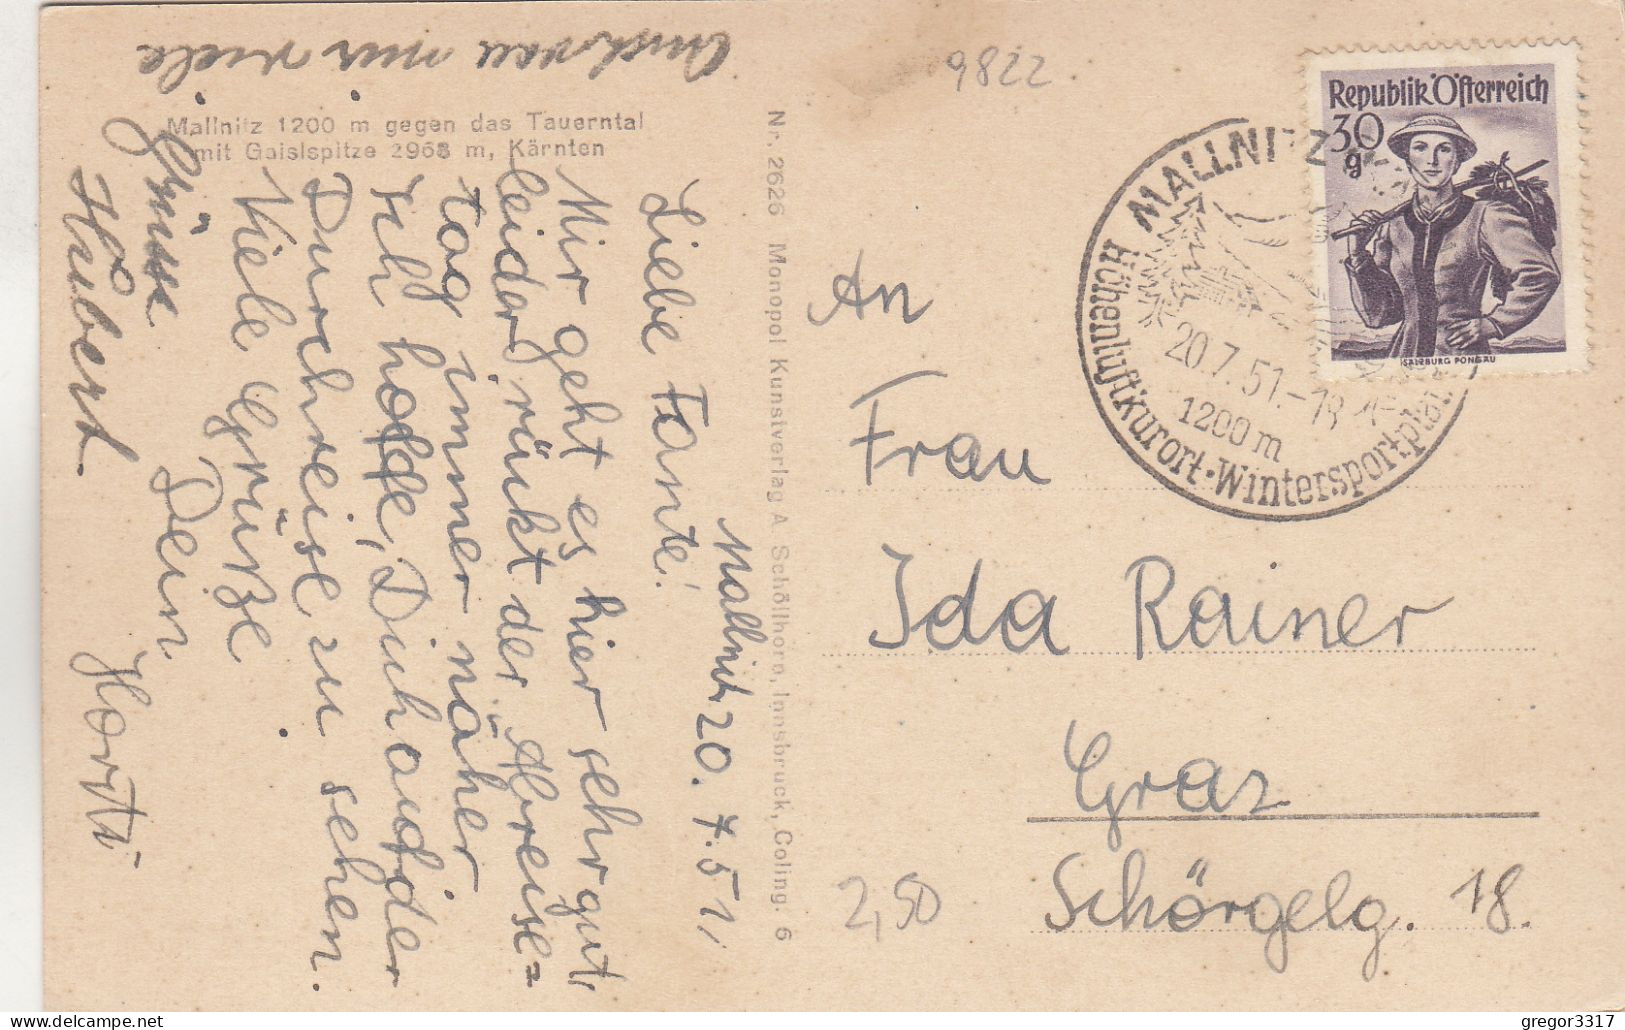 Mallnitz 1200 m gegen das Tauerntal
mit Gaislspitze 2968 m, Kärnten
Mallnitz 20. 7. 51,
Liebe Tante!
Mir geht es hier sehr gut,
leider rückt der Abreise=
tag immer näher
Ich hoffe, Dich auf der
Durchreise zu sehen.
Viele Grüße
Dein
Horsti
Auch von mir viele
Grüsse
Hubert
Nr. 2626 Monopol Kunstverlag A. Schöllhorn, Innsbruck, Coling. 6
9822
Republik Österreich
30
g
SALZBURG PONGAU
MALLNITZ
20.7.51.-18
1200 m
Höhenluftkurort·Wintersportplatz
An
Frau
Ida Rainer
Graz
Schörgelg. 18.
2,50
gregor3317